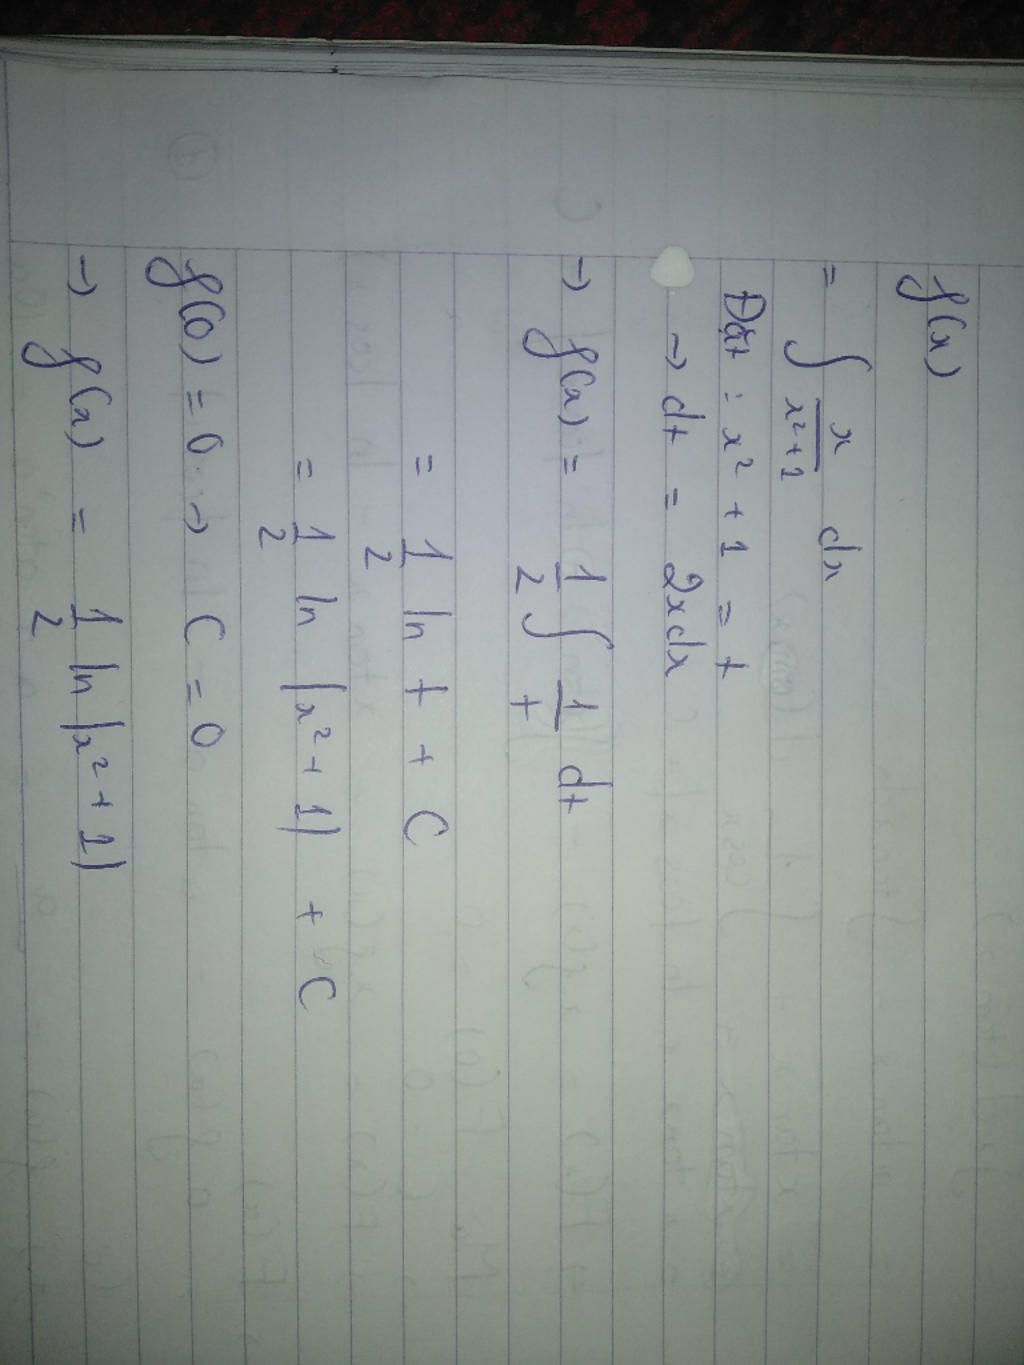 f(x)
= ∫ x/(x²+1) dx
Đặt : x² + 1 = t
→ dt = 2xdx
→ f(x) = 1/2 ∫ 1/t dt
= 1/2 ln t + C
= 1/2 ln |x² + 1| + C
f(0) = 0 → C = 0
→ f(x) = 1/2 ln |x² + 1|